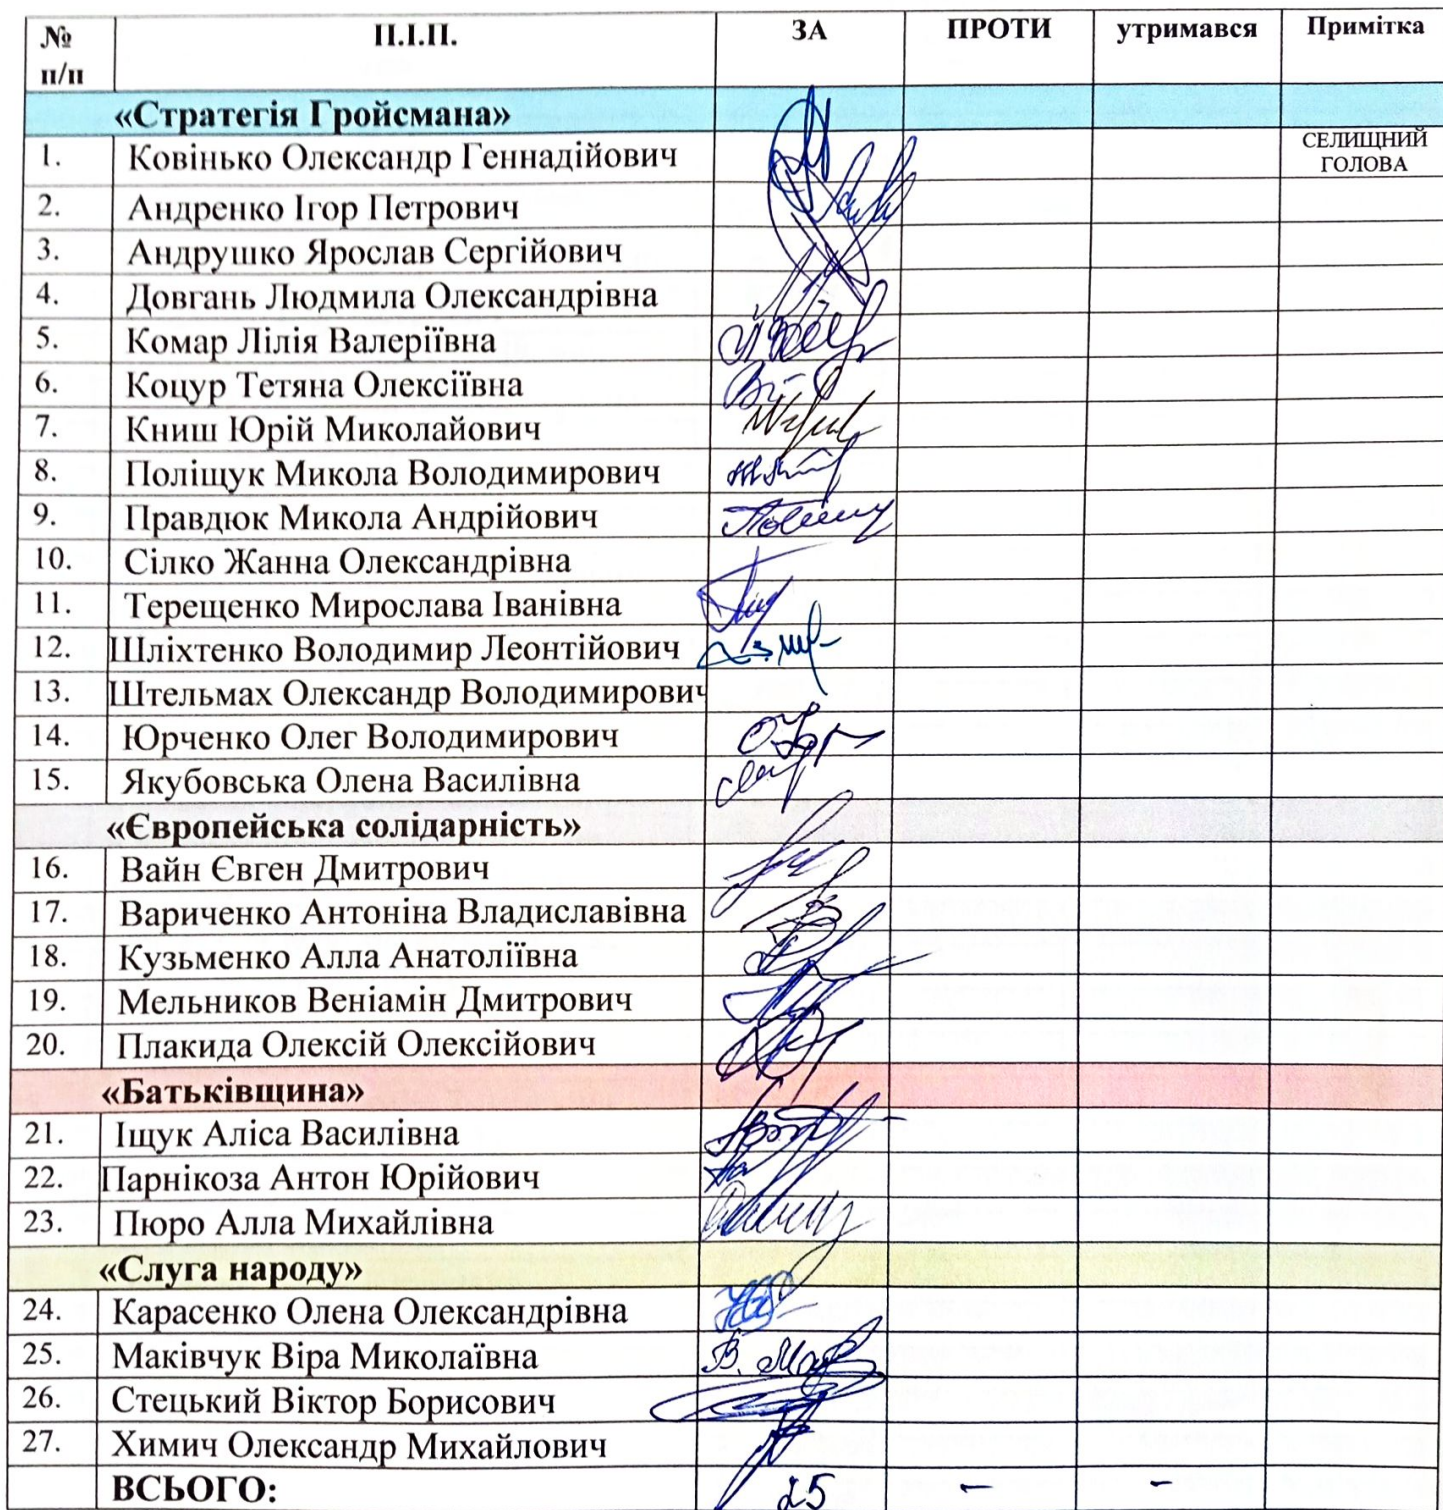 № п/п П.І.П. ЗА ПРОТИ утримався Примітка
«Стратегія Гройсмана»
1. Ковінько Олександр Геннадійович СЕЛИЩНИЙ ГОЛОВА
2. Андренко Ігор Петрович
3. Андрушко Ярослав Сергійович
4. Довгань Людмила Олександрівна
5. Комар Лілія Валеріївна
6. Коцур Тетяна Олексіївна
7. Книш Юрій Миколайович
8. Поліщук Микола Володимирович
9. Правдюк Микола Андрійович
10. Сілко Жанна Олександрівна
11. Терещенко Мирослава Іванівна
12. Шліхтенко Володимир Леонтійович
13. Штельмах Олександр Володимирович
14. Юрченко Олег Володимирович
15. Якубовська Олена Василівна
«Європейська солідарність»
16. Вайн Євген Дмитрович
17. Вариченко Антоніна Владиславівна
18. Кузьменко Алла Анатоліївна
19. Мельников Веніамін Дмитрович
20. Плакида Олексій Олексійович
«Батьківщина»
21. Іщук Аліса Василівна
22. Парнікоза Антон Юрійович
23. Пюро Алла Михайлівна
«Слуга народу»
24. Карасенко Олена Олександрівна
25. Маківчук Віра Миколаївна
26. Стецький Віктор Борисович
27. Химич Олександр Михайлович
ВСЬОГО: 25 - -